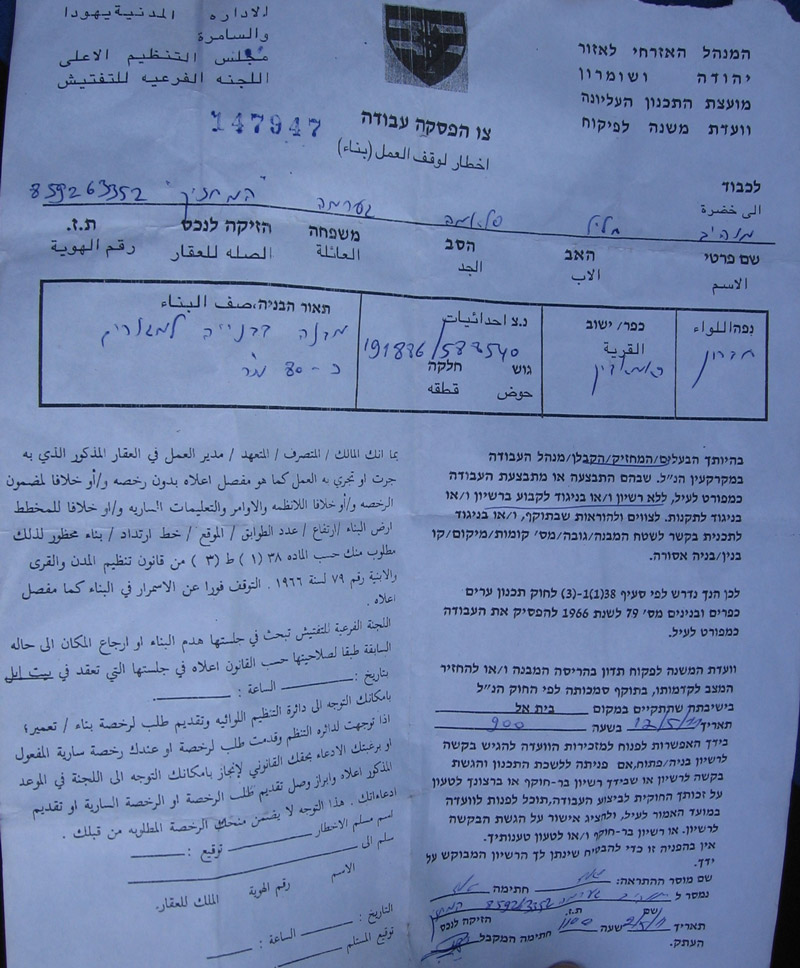 המנהל האזרחי לאזור
יהודה ושומרון
מועצת התכנון העליונה
וועדת משנה לפיקוח
لاداره المدنية يهودا
والسامرة
مجلس التنظيم الاعلى
اللجنه الفرعيه للتفتيش
147947
צו הפסקה עבודה
اخطار لوقف العمل (بناء)
לכבוד
الى حضرة
חליל סלאמה המחזיק 859263352
שם פרטי האב הסב משפחה הזיקה לנכס ת.ז.
الاسم الاب الجد العائلة الصله للعقار رقم الهوية
נפה\اللواء כפר/ ישוב נ.צ احداثيات תאור הבניה،صف البناء
חברון القرية 191836/588540 מבנה בבנייה למגורים
גוש חלקה
حوض قطقه
כ-80 מ"ר
בהיותך הבעלים/המחזיק/הקבלן/מנהל העבודה
במקרקעין הנ"ל. שבהם התבצעה או מתבצעת העבודה
כמפורט לעיל, ללא רשיון ו/או בניגוד לקבוע ברשיון ו/או
בניגוד לתקנות. לצווים ולהוראות שבתוקף, ו/או בניגוד
לתכנית בקשר לשטח המבנה/גובה/מס' קומות/מיקום/קו
בנין/בניה אסורה.
לכן הנך נדרש לפי סעיף 38(1)1-(3) לחוק תכנון ערים
כפרים ובנינים מס' 79 לשנת 1966 להפסיק את העבודה
כמפורט לעיל.
וועדת המשנה לפקוח תדון בהריסה המבנה ו/או להחזיר
המצב לקדמותו, בתוקף סמכותה לפי החוק הנ"ל
בישיבתה שתתקיים במקום בית אל
תאריך 12/5/11 בשעה 900
בידך האפשרות לפנוח למזכירות הוועדה להגיש בקשה
לרשיון בניה/פתוח,אם פניתה ללשכת התכנון והגשת
בקשה לרשיון או שבידך רשיון בר-חוקף או ברצונך לטעון
על זכותך החוקית לביצוע העבודה,תוכל לפנות לוועדה
במועד האמור לעיל, ולהציג אישור על הגשת הבקשה
לרשיון. או רשיון בר-חוקף ו/או לטעון טענותיך.
אין בהפניה זו כדי להבטיח שינתן לך הרשיון המבוקש על
ידך.
שם מוסר ההתראה: חתימה
נמסר ל 859263352
שם ת.ז. הזיקה לנכס
תאריך שעה 1100 חתימה המקבל
העתק.
بما انك المالك / المتصرف / المتعهد / مدير العمل في العقار المذكور الذي به
جرت او تجري به العمل كما هو مفصل اعلاه بدون رخصه و/أو خلافا لمضمون
الرخصه و/أو خلافا للانظمه والاوامر والتعليمات الساريه و/او خلافا للمخطط
ارض البناء /ارتفاع / عدد الطوابق / الموقع / خط ارتداد / بناء محظور لذلك
مطلوب منك حسب الماده ٣٨ (١) ط (٣) من قانون تنظيم المدن والقرى
والابنية رقم ٧٩ لسنة ١٩٦٦ . التوقف فورا عن الاسمرار في البناء كما مفصل
اعلاه .
اللجنة الفرعية للتفتيش تبحث في جلستها هدم البناء او ارجاع المكان الى حاله
السابقة طبقا لصلاحيتها حسب القانون اعلاه في جلستها التي تعقد في بيت ايل
بتاريخ : الساعة :
بامكانك التوجه الى دائرة التنظيم اللوائيه وتقديم طلب لرخصة بناء / تعمير؛
اذا توجهت لدائره التنظم وقدمت طلب لرخصة او عندك رخصة سارية المفعول
او برغبتك الادعاء بحقك القانوني لإنجاز بامكانك التوجه الى اللجنة في الموعد
المذكور اعلاه وابراز وصل تقديم طلب الرخصة او الرخصة السارية او تقديم
ادعاءاتك . هذا التوجه لا يضمن منحك الرخصة المطلوبه من قبلك .
اسم مسلم الاخطار توقيع :
سلم الى
الاسم رقم الهوية الملك للعقار.
التاريخ : الساعة :
توقيع المستلم